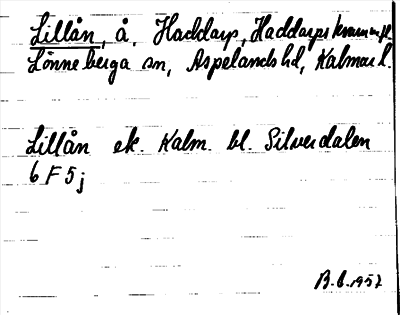 Lillån, å, Haddarp, Haddarps
Lönneberga sn, Aspelands hd, Kalmar l.
Lillån ek. Kalm. bl. Silverdalen
6 F 5 j
B.6.1957